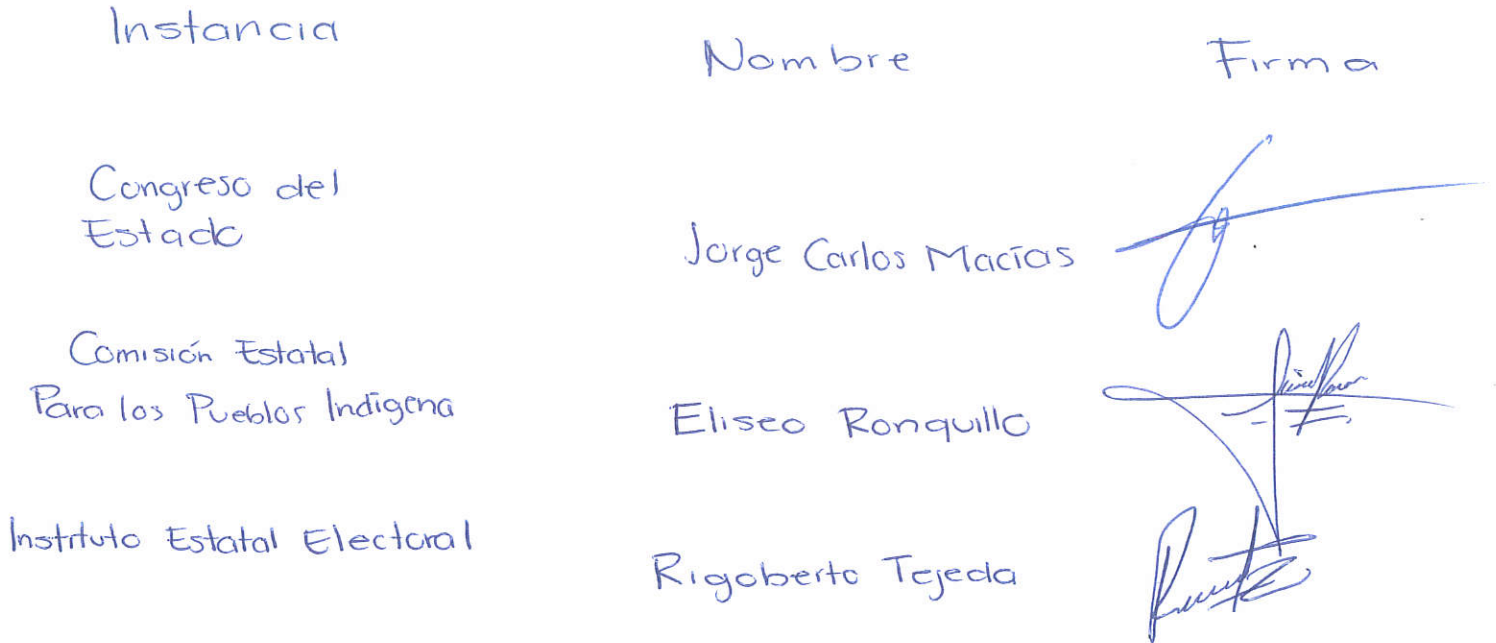 Instancia Nombre Firma
Congreso del
Estado
Jorge Carlos Macías
Comisión Estatal
Para los Pueblos Indígena
Eliseo Ronquillo
Instituto Estatal Electoral
Rigoberto Tejeda